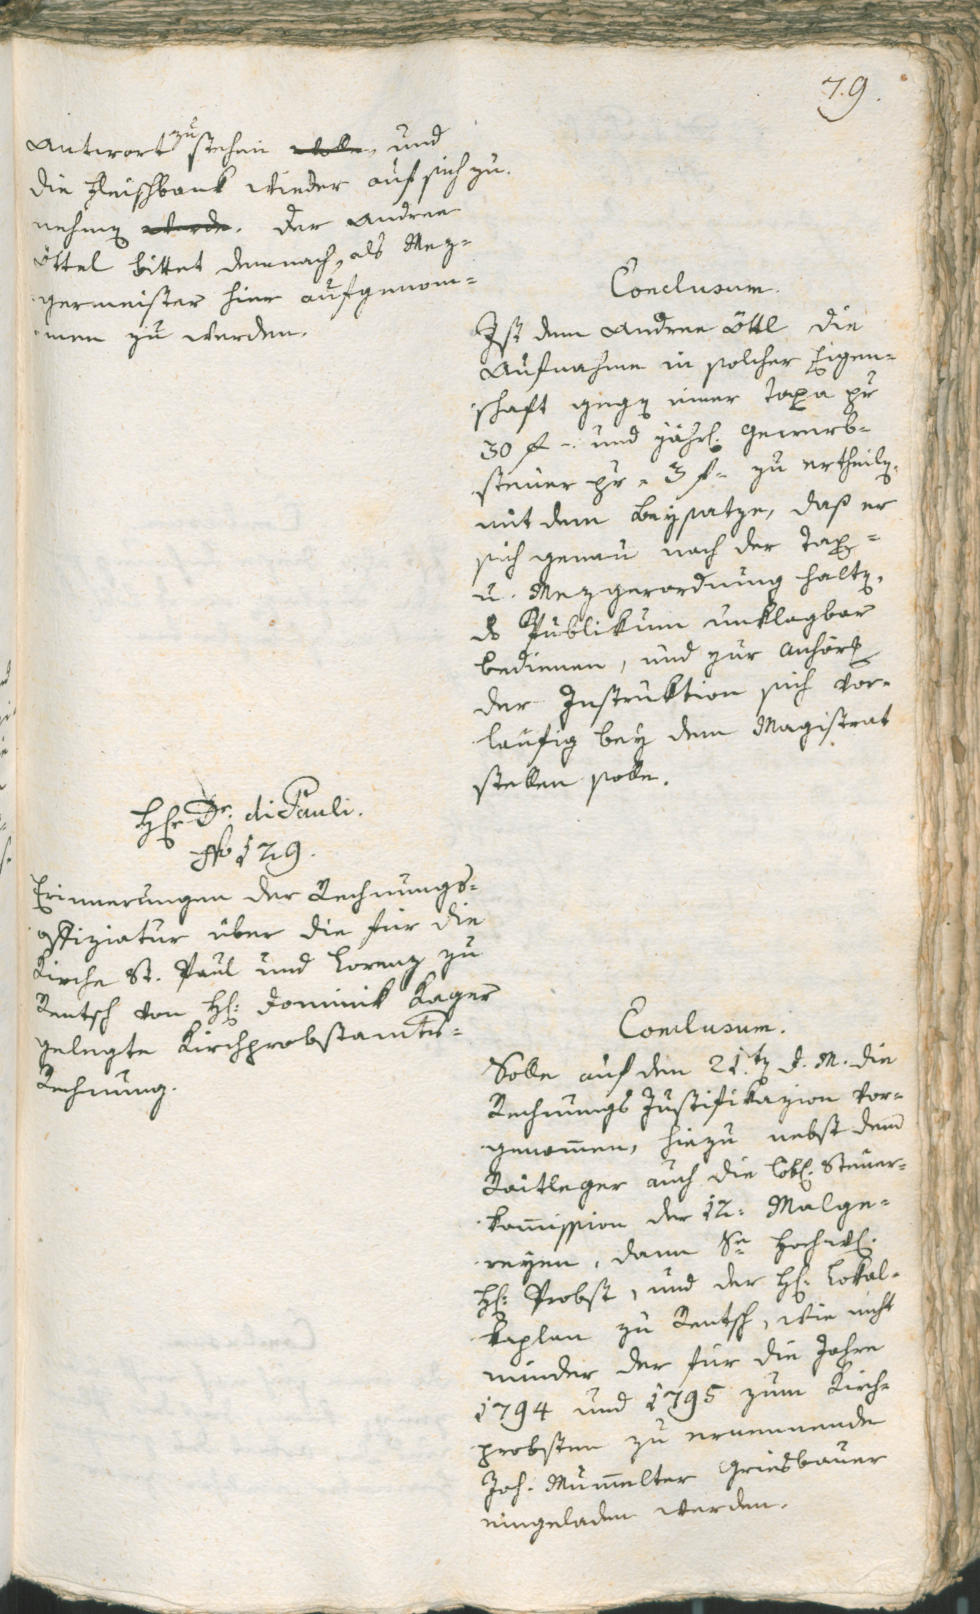 79.
Antwort zu stehen wolle, und
die Fleischbank wieder auf sich zu
nehmen werde. Der Andree
Öttel bittet demnach, als Mez-
germeister hier aufgenom-
men zu werden.
Conclusum.
Ist dem Andree Öttl die
Aufnahme in solcher Eigen-
schaft gegen einer Taxa pr
30 f – und jährl. Gewerb-
steuer pr 3 f – zu ertheilen,
mit dem Beysatze, daß er
sich genau nach der Tax-
u. Mezgerordnung halten,
ds Publikum unklagbar
bedienen, und zur Anhörg
der Instruktion sich vor-
läufig bey dem Magistrat
stellen solle.
Hr Dr. di Pauli.
No 129.
Erinnerungen der Rechnungs-
offiziatur über die für die
Kirche St. Paul und Lorenz zu
Rentsch von H: Dominik Kager
gelegte Kirchprobstamts-
Rechnung.
Conclusum.
Solle auf den 21.ten d. M. die
Rechnungs Justifikazion vor-
genommen, hiezu nebst dem
Raitleger auch die löbl. Steuer-
kommission der 12. Malge-
reyen, dann Se Hochw.
H: Probst, und der H: Lokal-
kaplan zu Rentsch, wie nicht
minder der für die Jahre
1794 und 1795 zum Kirch-
probsten zu ernennende
Joh. Mumelter Griesbauer
eingeladen werden.